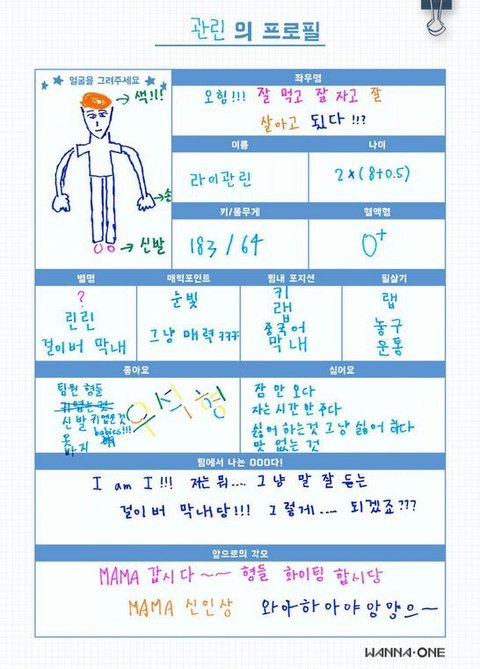 관린의 프로필
얼굴을 그려주세요
색!!!
손
신발
좌우명
오힘!!! 잘 먹고 잠 자고 잘
살아고 됬다 !!?
이름
라이관린
나이
2×(8+0.5)
키/몸무게
183 / 64
혈액형
O+
별명
?
린린
걸이버 막내
매력포인트
눈빛
그냥 매력 ㅋㅋㅋ
팀내 포지션
키
랩
중국어
막내
필살기
랩
농구
운동
좋아요
팀원 형들
귀엽는것
신발 귀엽은것
옷 babies!!!
바지
우석형
싫어요
잠 안 오다
자는 시간 안 주다
싫어 하는것 그냥 싫어 하다
맛 없는 것
팀에서 나는 OOO다!
I am I !!! 저는 뭐.... 그냥 말 잘 듣는
걸이버 막내당!!! 그렇게.... 되겠죠???
앞으로의 각오
MAMA 갑시다~~ 형들 화이팅 합시당
MAMA 신인상 와아하아야앙먕으~
WANNA·ONE